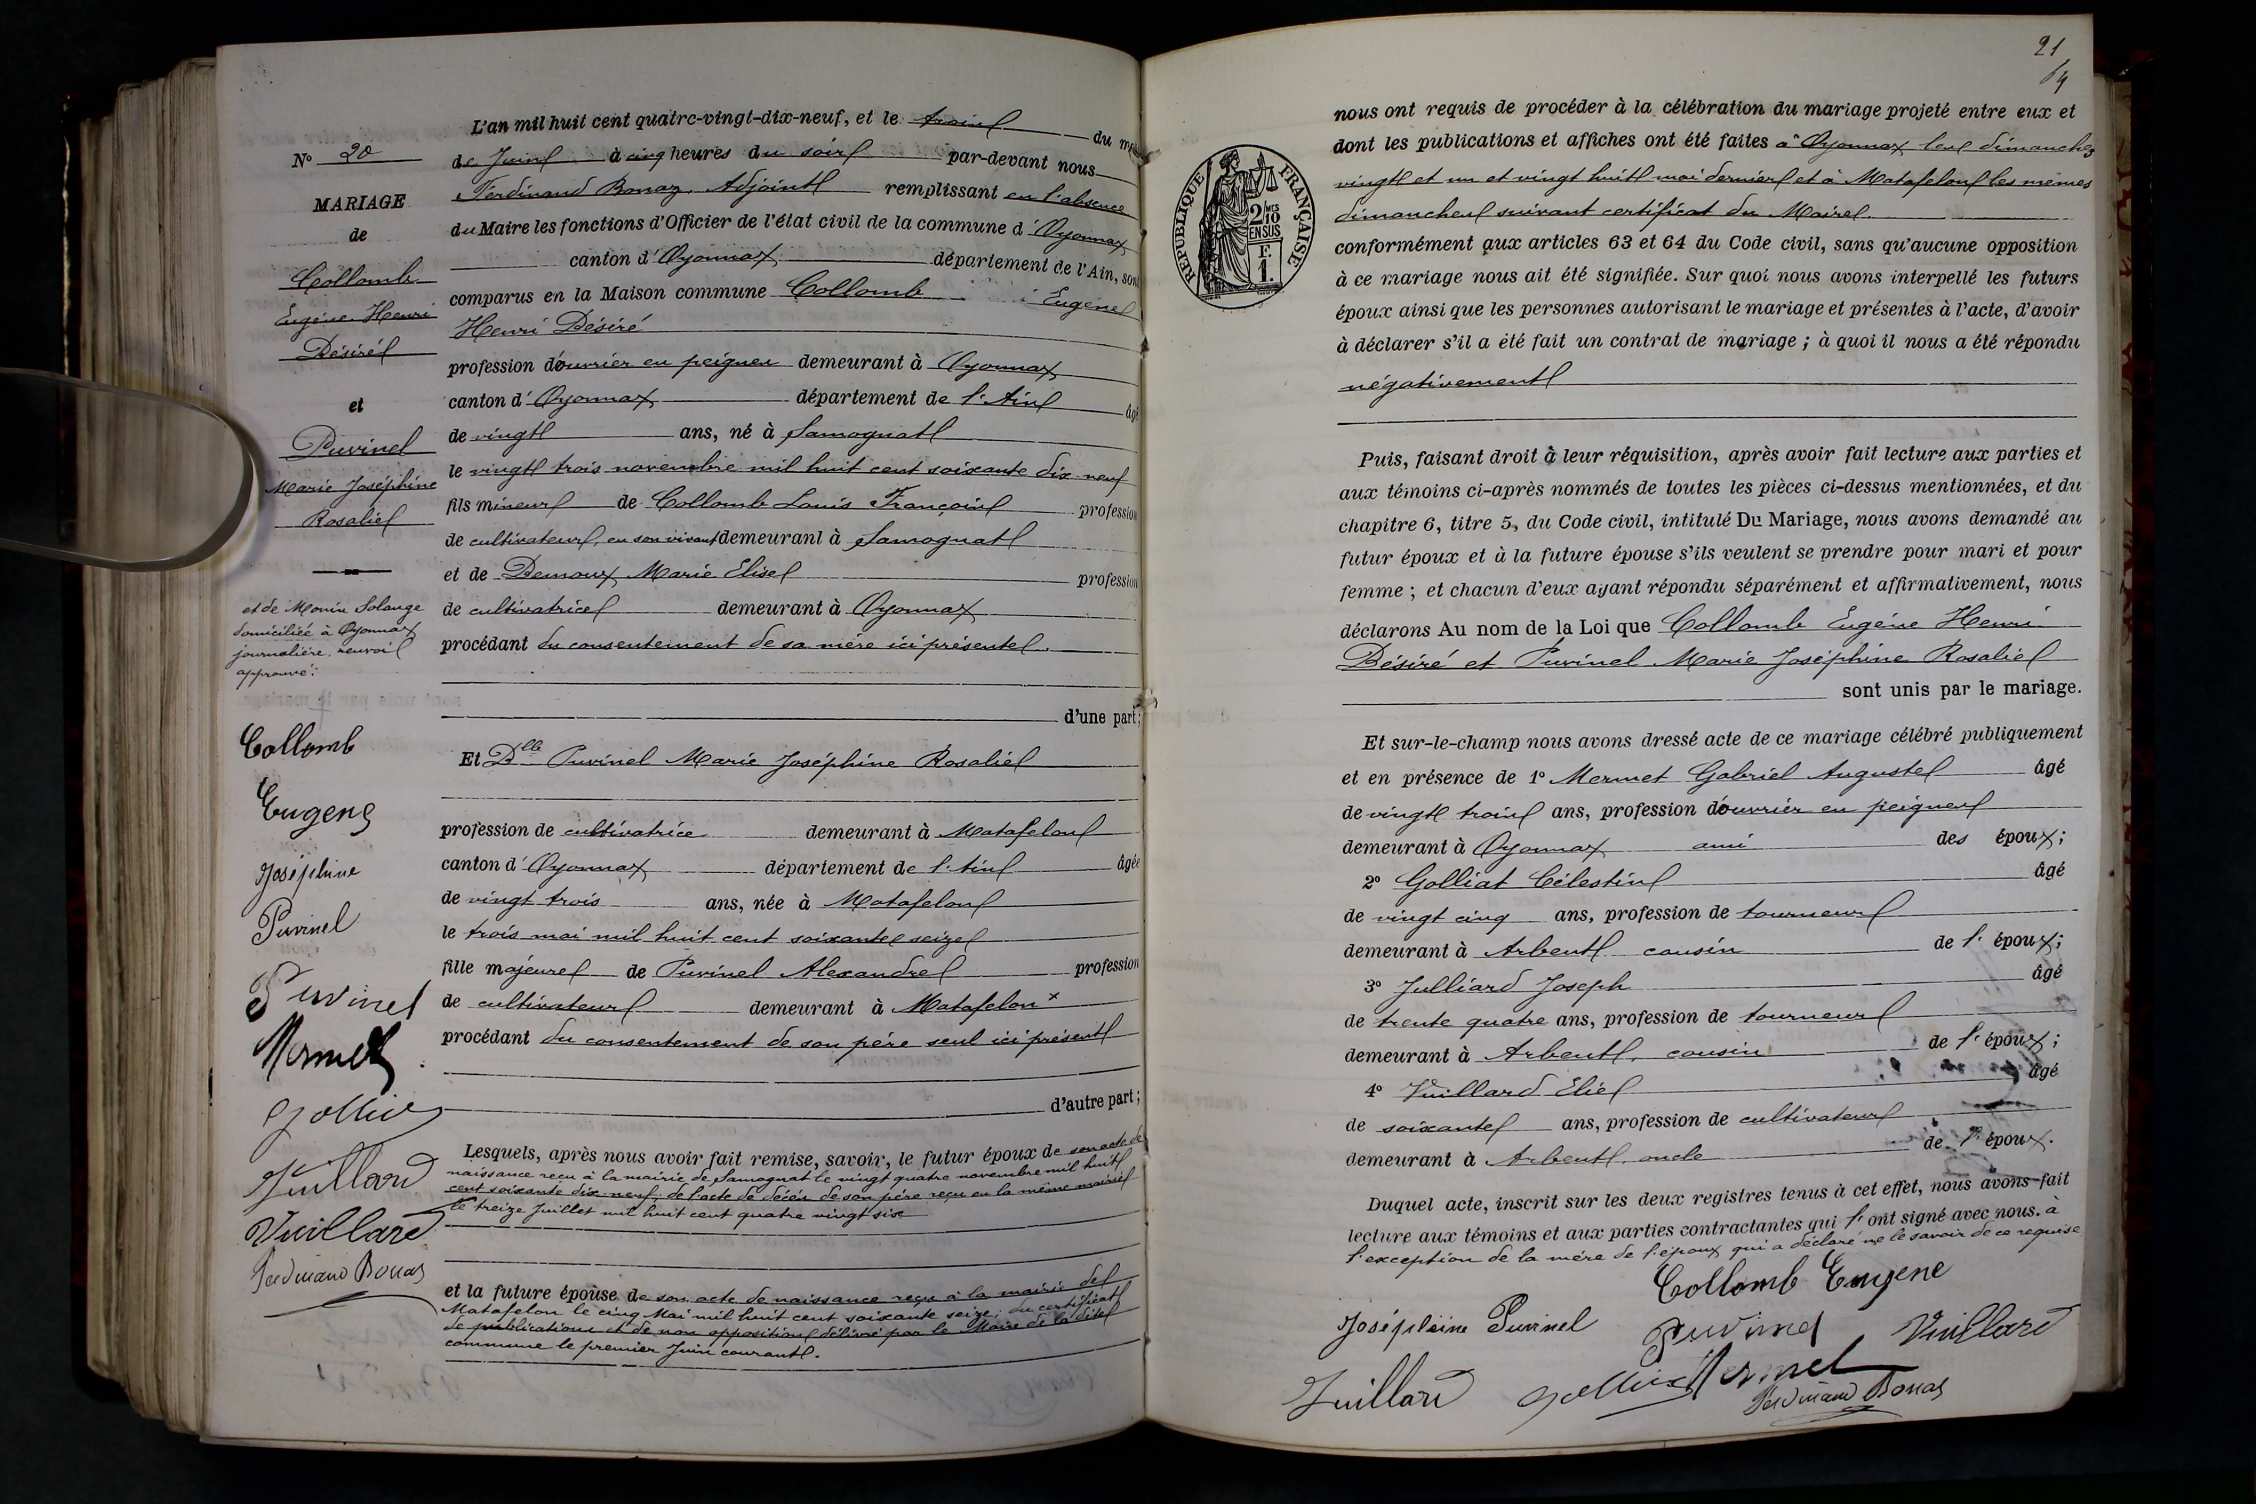 N° 20
MARIAGE
de
Collomb
Eugène Henri
Désiré
et
Puvinel
Marie Joséphine
Rosalie
et de Monin Solange
domiciliée à Oyonnax
journalière, renvoi
approuvé.
Collomb
Eugene
Joséphine
Puvinel
Puvinel
Mermet
Golliat
Juillard
Vuillard
Ferdinand Bonaz
L'an mil huit cent quatre-vingt-dix-neuf, et le trois du mois
de Juin à cinq heures du soir par-devant nous
Ferdinand Bonaz, Adjoint remplissant en l'absence
du Maire les fonctions d'Officier de l'état civil de la commune d'Oyonnax
canton d'Oyonnax département de l'Ain, sont
comparus en la Maison commune Collomb Eugène
Henri Désiré
profession d'ouvrier en peignes demeurant à Oyonnax
canton d'Oyonnax département de l'Ain âgé
de vingt ans, né à Samognat
le vingt trois novembre mil huit cent soixante dix neuf
fils mineur de Collomb Louis François profession
de cultivateur, en son vivant demeurant à Samognat
et de Demoux Marie Elise profession
de cultivatrice demeurant à Oyonnax
procédant du consentement de sa mère ici présente.
d'une part;
Et Dlle Puvinel Marie Joséphine Rosalie
profession de cultivatrice demeurant à Matafelon
canton d'Oyonnax département de l'Ain âgée
de vingt trois ans, née à Matafelon
le trois mai mil huit cent soixante seize
fille majeure de Puvinel Alexandre profession
de cultivateur demeurant à Matafelon x
procédant du consentement de son père seul ici présent
d'autre part;
Lesquels, après nous avoir fait remise, savoir, le futur époux de son acte de
naissance reçu à la mairie de Samognat le vingt quatre novembre mil huit
cent soixante dix neuf; de l'acte de décès de son père reçu en la même mairie
le treize Juillet mil huit cent quatre vingt six
et la future épouse de son acte de naissance reçu à la mairie de
Matafelon le cinq Mai mil huit cent soixante seize; du certificat
de publications et de non opposition délivré par le Maire de la dite
commune le premier Juin courant.
21
RÉPUBLIQUE FRANÇAISE
2/10 MES
EN SUS
F.
1.
nous ont requis de procéder à la célébration du mariage projeté entre eux et
dont les publications et affiches ont été faites à Oyonnax les dimanches
vingt et un et vingt huit mai dernier et à Matafelon les mêmes
dimanches suivant certificat du Maire.
conformément aux articles 63 et 64 du Code civil, sans qu'aucune opposition
à ce mariage nous ait été signifiée. Sur quoi nous avons interpellé les futurs
époux ainsi que les personnes autorisant le mariage et présentes à l'acte, d'avoir
à déclarer s'il a été fait un contrat de mariage; à quoi il nous a été répondu
négativement
Puis, faisant droit à leur réquisition, après avoir fait lecture aux parties et
aux témoins ci-après nommés de toutes les pièces ci-dessus mentionnées, et du
chapitre 6, titre 5, du Code civil, intitulé Du Mariage, nous avons demandé au
futur époux et à la future épouse s'ils veulent se prendre pour mari et pour
femme; et chacun d'eux ayant répondu séparément et affirmativement, nous
déclarons Au nom de la Loi que Collomb Eugène Henri
Désiré et Puvinel Marie Joséphine Rosalie
sont unis par le mariage.
Et sur-le-champ nous avons dressé acte de ce mariage célébré publiquement
et en présence de 1° Mermet Gabriel Auguste âgé
de vingt trois ans, profession d'ouvrier en peignes
demeurant à Oyonnax ami des époux;
2° Golliat Célestin âgé
de vingt cinq ans, profession de tourneur
demeurant à Arbent cousin de l'époux;
3° Julliard Joseph âgé
de trente quatre ans, profession de tourneur
demeurant à Arbent, cousin de l'époux;
4° Vuillard Elie âgé
de soixante ans, profession de cultivateur
demeurant à Arbent, oncle de l'époux.
Duquel acte, inscrit sur les deux registres tenus à cet effet, nous avons fait
lecture aux témoins et aux parties contractantes qui l'ont signé avec nous. à
l'exception de la mère de l'époux qui a déclaré ne le savoir de ce requise
Collomb Eugene
Joséphine Puvinel Puvinel Vuillard
Juillard Golliat Mermet
Ferdinand Bonaz